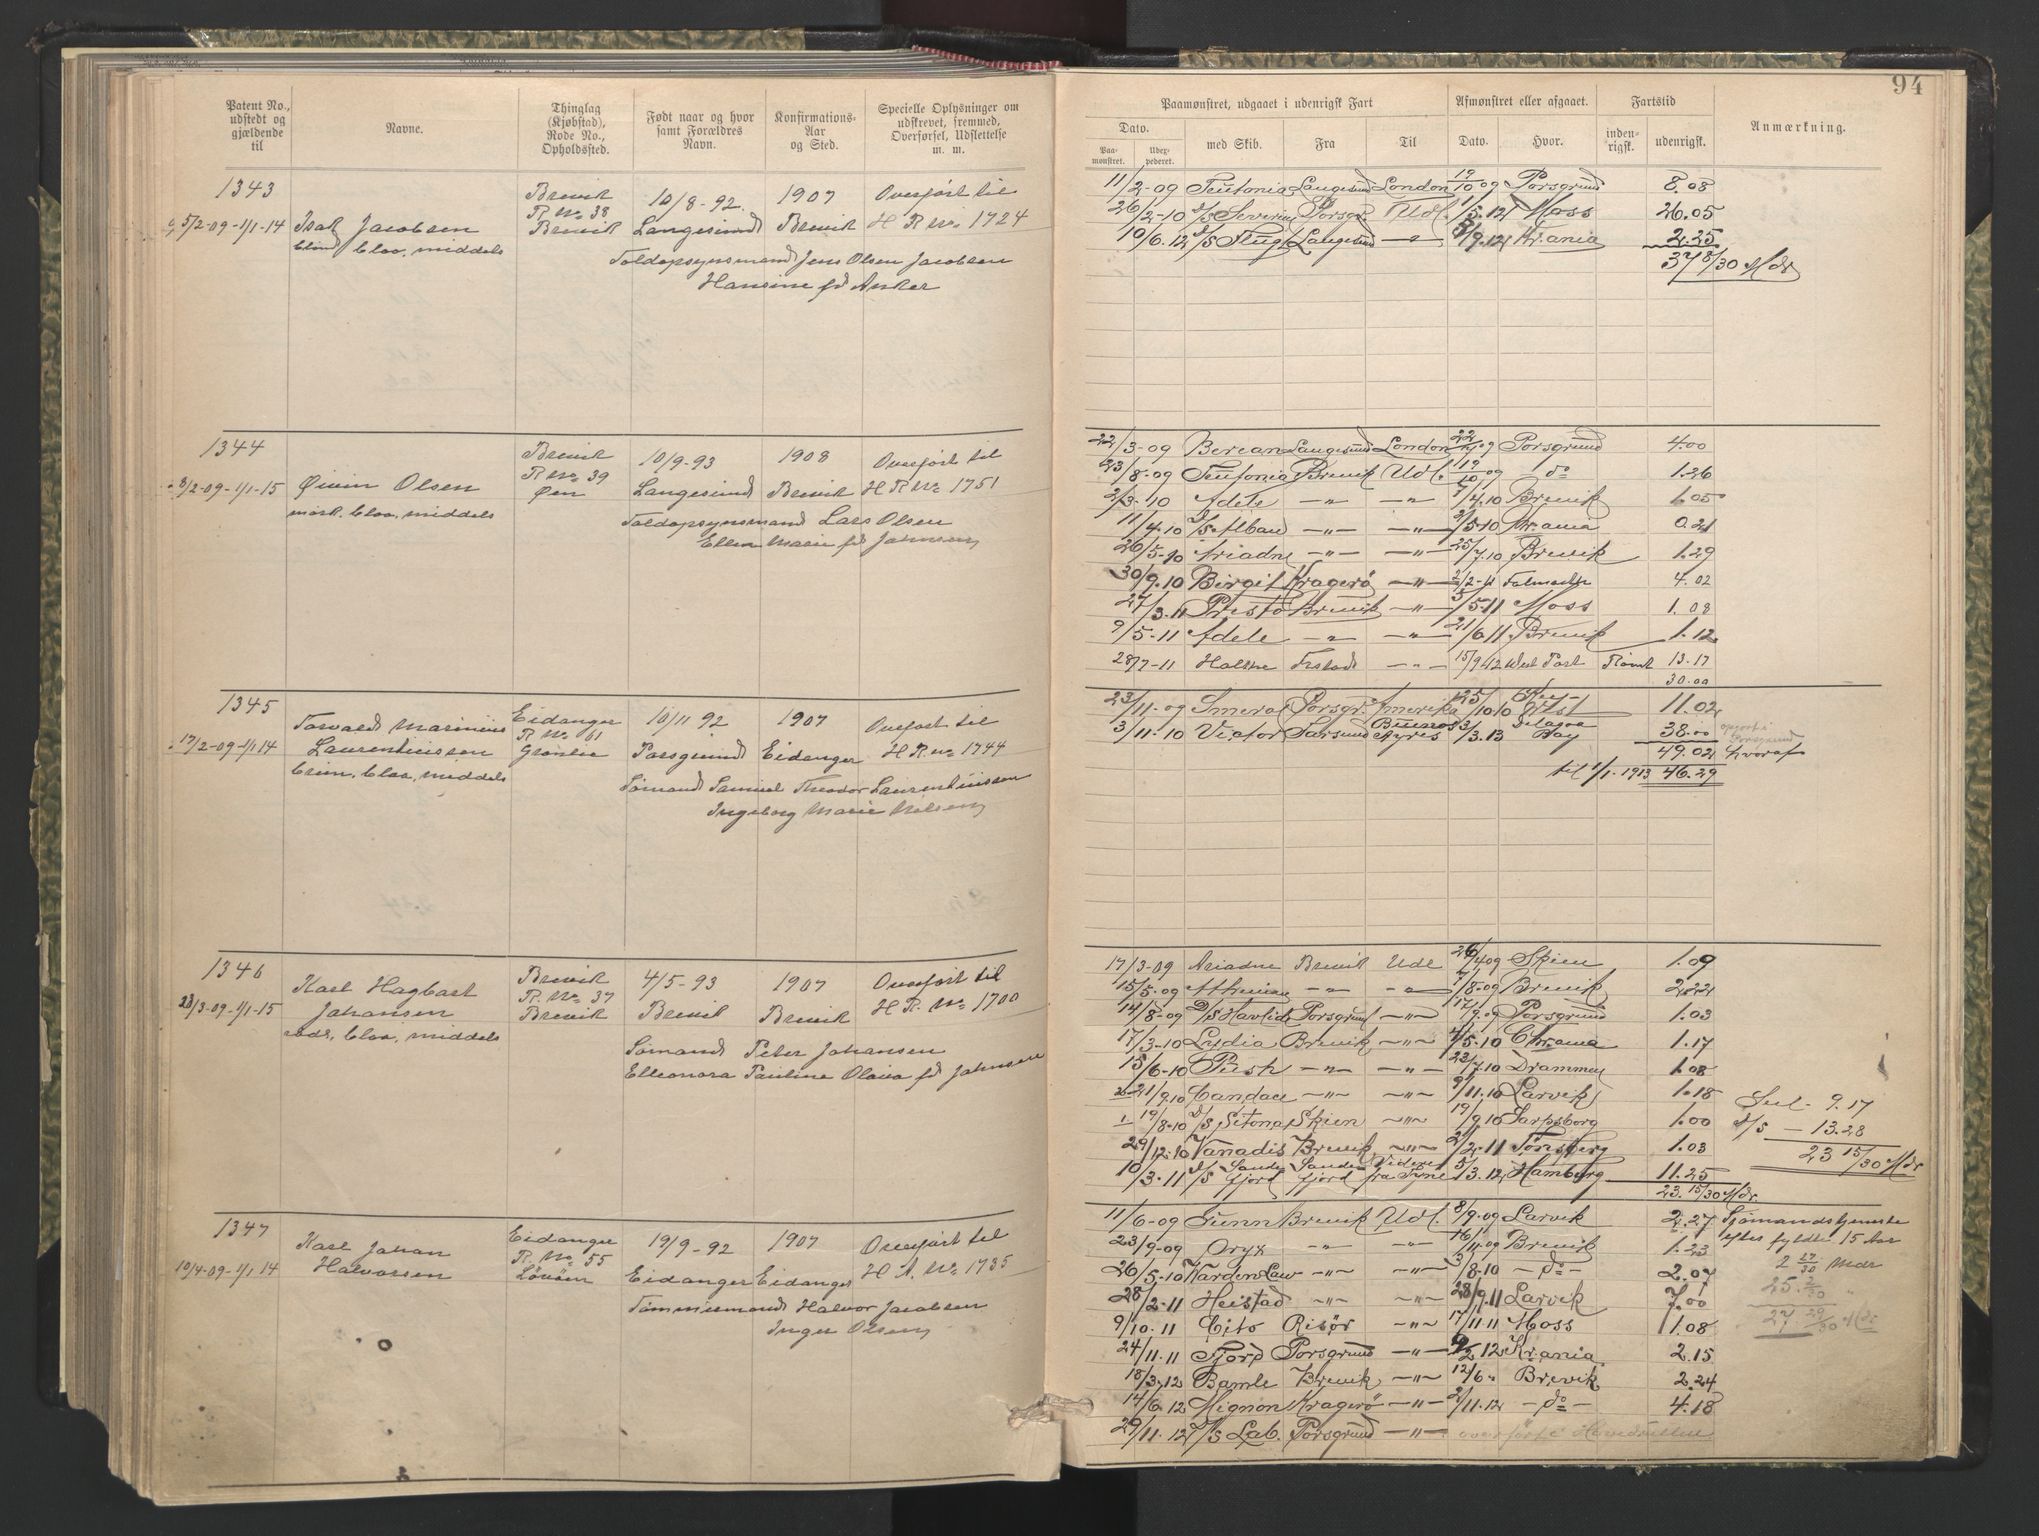 94
Patent No., udstedt og gjældende til
Navne.
Thinglag (Kjøbstad), Rode No., Opholdssted.
Født naar og hvor samt Forældres Navn.
Konfirmations-Aar og Sted.
Specielle Oplysninger om udskrevet, fremmed, Overførsel, Udslettelse m. m.
Paamønstret, udgaaet i udenrigsk Fart
Afmønstret eller afgaaet.
Fartstid
Anmærkning.
Dato.
Paa-mønstret.
Udex-pederet.
med Skib.
Fra
Til
Dato.
Hvor.
inden-rigsk.
udenrigsk.
1343 Brevik 10/8-92. 1907 Overført til
5/2-09-1/1-14 Isak Jacobsen R. No 38 Brevik Langesund Brevik H R No. 1724
blond, blaa, middels
Toldopsynsmand Jens Olsen Jacobsen
Hansine fd Anker
11/2-09 Teutonia Langesund London 19/10 09 Porsgrund 8.08
26/2-10 D/S Severin Porsgr. Udl. 1/5.12 Moss 26.05
10/6.12 D/S Flugt Langesund -"- 5/9.12 Kr.ania 2.25
37 8/30 Mdr
1344 Brevik 10/9-93 1908 Overført til
8/2-09-1/1-15 Øivin Olsen R No 39 Øen Langesund Brevik H R No 1751
mørk, blaa, middels
Toldopsynsmand Lars Olsen
Ellen Marie fd Johnsen
22/3-09 Berean Langesund London Porsgrund 4.00
23/8-09 Teutonia Brevik Udl. 19/10 09 do 1.26
2/3-10 Adele -"- -"- 7/4.10 Brevik 1.05
11/4.10 D/S Alban -"- -"- 2/5-10 Kr.ania 0.21
26/5-10 Ariadne -"- -"- 25/7.10 Brevik 1.29
30/9.10 Birgit Kragerø -"- 2/2-11 4.02
27/3.11 Presto Brevik -"- 5/5-11 Moss 1.08
9/5-11 Adele -"- -"- 21/6 11 Brevik 1.12
28/7-11 -"- 15/9 12 West Port Rømt 13.17
30.00
1345 Eidanger 10/11 92 1907 Overført til
17/2-09-1/1 14 Torvald Marinius R No 61 Porsgrund Eidanger H R No 1744
Laurentiussen Grønlie
brun, blaa, middels
Sømand Samuel Theodor Laurentiussen
Ingeborg Marie Nilsen
23/11-09 Smeral Porsgr. Amerika 25/10 10 Key West 11.02
3/11.10 Victor Sarsund Buenos Ayres 3/3.13 Delagoa Bay 38.00
49.02 hvoraf
til 1/1-1913 46.29
1346 Brevik 4/5-93 1907 Overført til
23/3-09-1/1-15 Karl Hagbart R. No 37 Brevik Brevik Brevik H R. No 1700
Johansen
rødt, blaa, middels
Sømand Peter Johansen
Elleonora Pauline Olava fd Johnsen
17/3-09 Ariadne Brevik Udl 26/4 09 Skien 1.09
15/5-09 -"- -"- 7/8-09 Brevik 2.22
14/8-09 D/S Havlide Porsgrund -"- 17/9.09 Porsgrund 1.03
17/3-10 Lydia Brevik -"- 4/5.10 Chr.ania 1.17
15/6-10 Push -"- -"- 23/7.10 Drammen 1.08
21/9.10 Candace -"- -"- 9/11.10 Larvik 1.18
19/8-10 D/S Sitona Skien -"- 19/9.10 Sarpsborg 1.00
29/12.10 Vanadis Brevik -"- 2/2-11 Tønsberg 1.03
10/3.11 D/S Sandefjord Sandefjord Videre fra Tyne 5/3.12 Hamburg 11.25
23.15/30 Mdr.
Seil - 9.17
D/S - 13.28
23 15/30 Mdr
1347 Eidanger 19/9-92 1907 Overført til
10/4-09-1/1 14 Karl Johan R. No. 55 Eidanger Eidanger H R. No 1735
Halvorsen
Tømmermand Halvor Jacobsen
Inger Olsen
11/6-09 Gunn Brevik Udl. 8/9-09 Larvik 2.27
23/9-09 Oryx -"- -"- 16/11-09 Brevik 1.23
26/5-10 -"- -"- 3/8.10 -do- 2.07
28/2-11 Heistad -"- -"- 28/9.11 Larvik 7.00
9/10.11 Cito Risør -"- 17/11.11 Moss 1.08
24/11.11 Fjord Porsgrund -"- 9/2 12 Kr.ania 2.15
18/3.12 Bamle Brevik -"- 12/6" Brevik 2.24
14/6.12 Mignon Kragerø -"- 2/11.12 -do- 4.18
29/11.12 D/S Lab. Porsgrund -"- overført i Hovedrullen
Sjømandstjeneste
efter fyldte 15 Aar
2 27/30 Mdr
25 2/30 "
27 29/30 Mdr